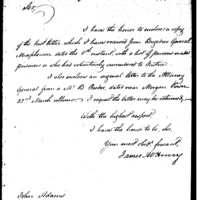 Sir,
I have the honor to enclose a copy
of the last letter which I have received from Brigadier General
Macpherson dated the 6th instant, with a list of persons made
prisoners or who had voluntarily surrendered to Justice.
I also enclose an original letter to the Attorney
General from a Mr. B. dated near Morgan Town
23rd March ultimo. I request the letter may be returned
With the highest respect
I have the honor to be Sir
Your most obt. servant,
James McHenry
John Adams